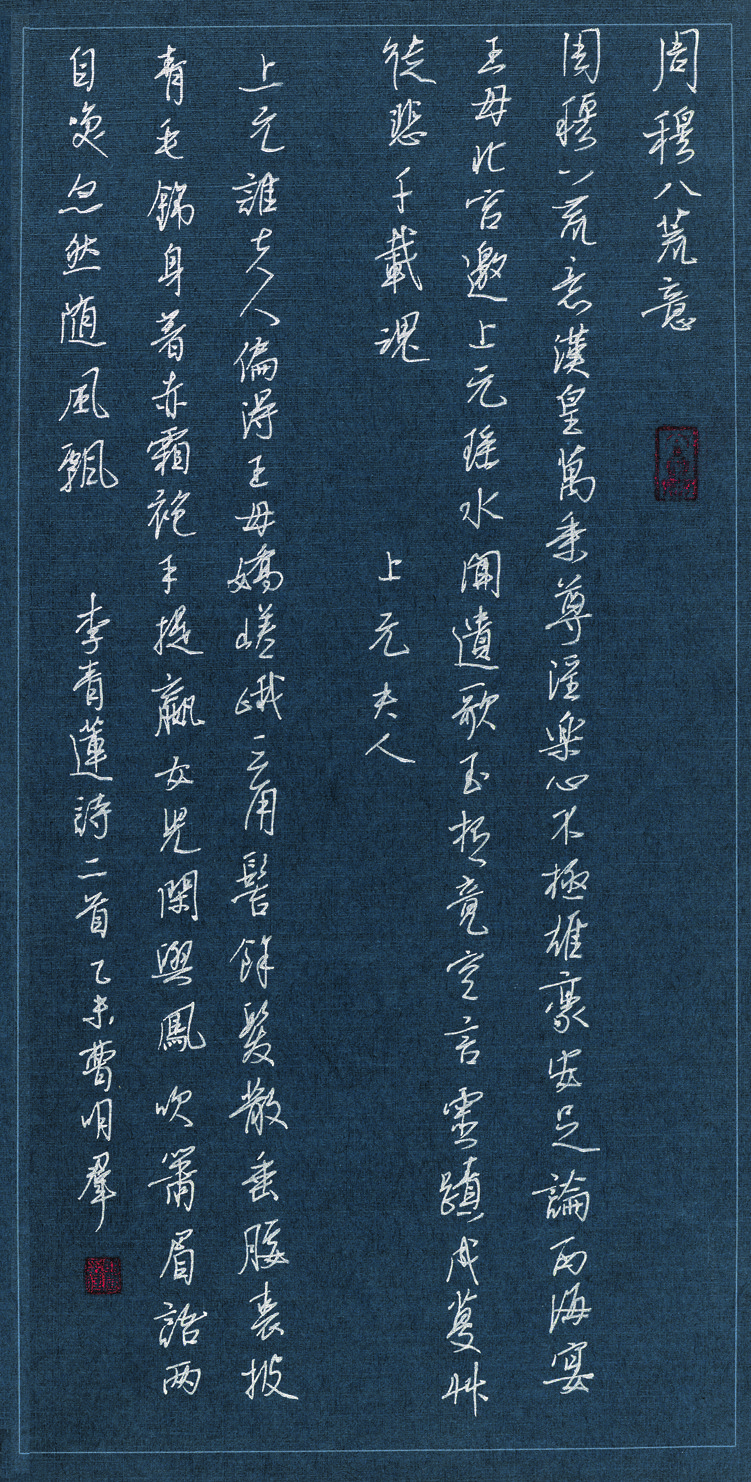 周穆八荒意
周穆八荒意漢皇萬乗尊淫樂心不極雄豪安足論西海宴
王母北宮邀上元瑤水聞遺歌玉杯竟空言靈蹟成蔓艸
徒悲千載魂
上元夫人
上元誰夫人偏得王母嬌嵯峨三角髻餘髮散垂腰裘披
青毛錦身著赤霜袍手提嬴女兒閑與鳳吹簫眉語两
自笑忽然随風飄
李青蓮詩二首乙未曹明羣